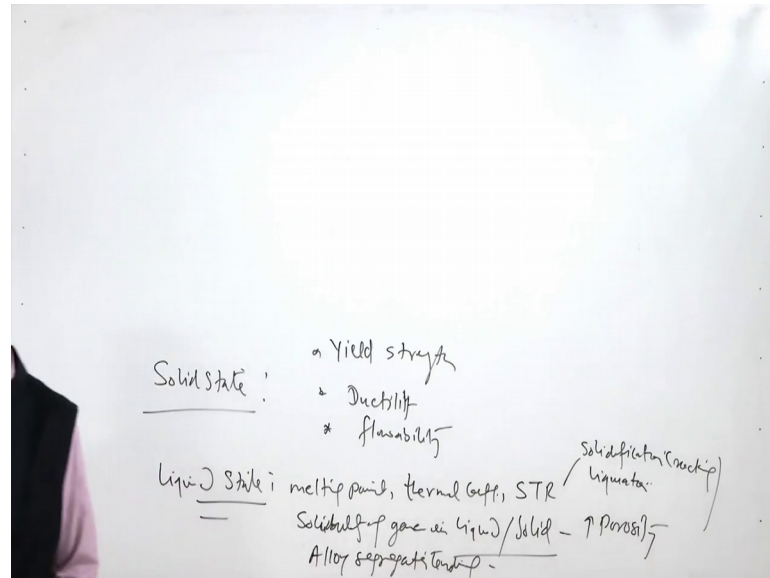 Solid State :
* Yield strength
* Ductility
* flowability
Liquid State : melting point, thermal coeff., STR / Solidification cracking
liquation
Solubility of gases in liquid / solid - ↑ Porosity
Alloy segregation tendency -